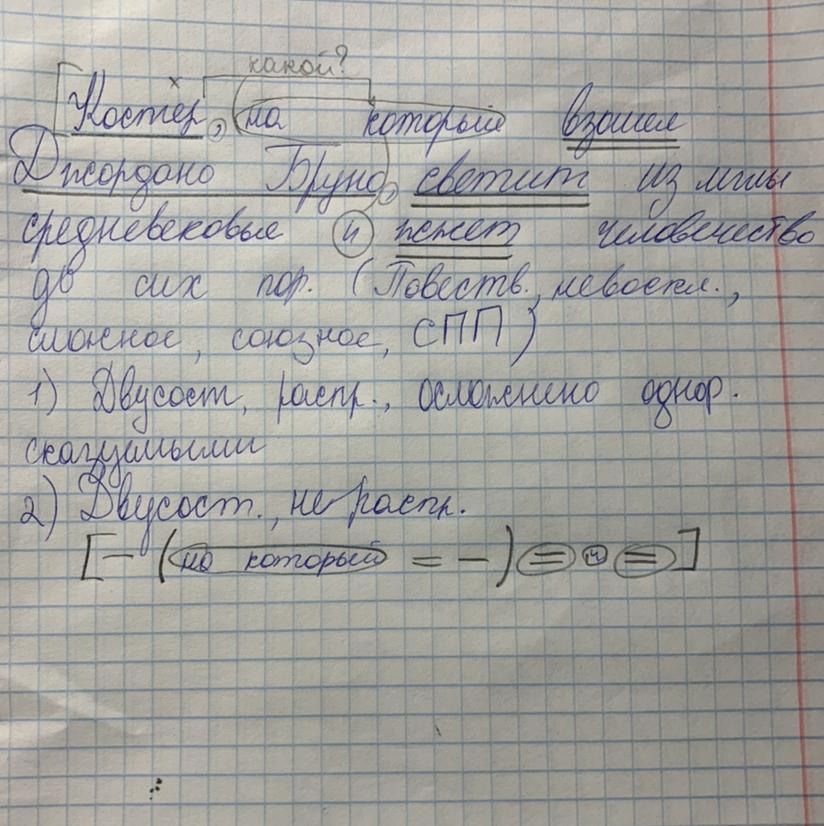 какой?
[Костер, (на который взошел
Джордано Бруно), светит из мглы
средневековья и жжет человечество
до сих пор. (Повеств., невоскл.,
сложное, союзное, СПП)
1) Двусост, распр., осложнено однор.
сказуемыми
2) Двусост., не распр.
[— (на который = —) = и =]